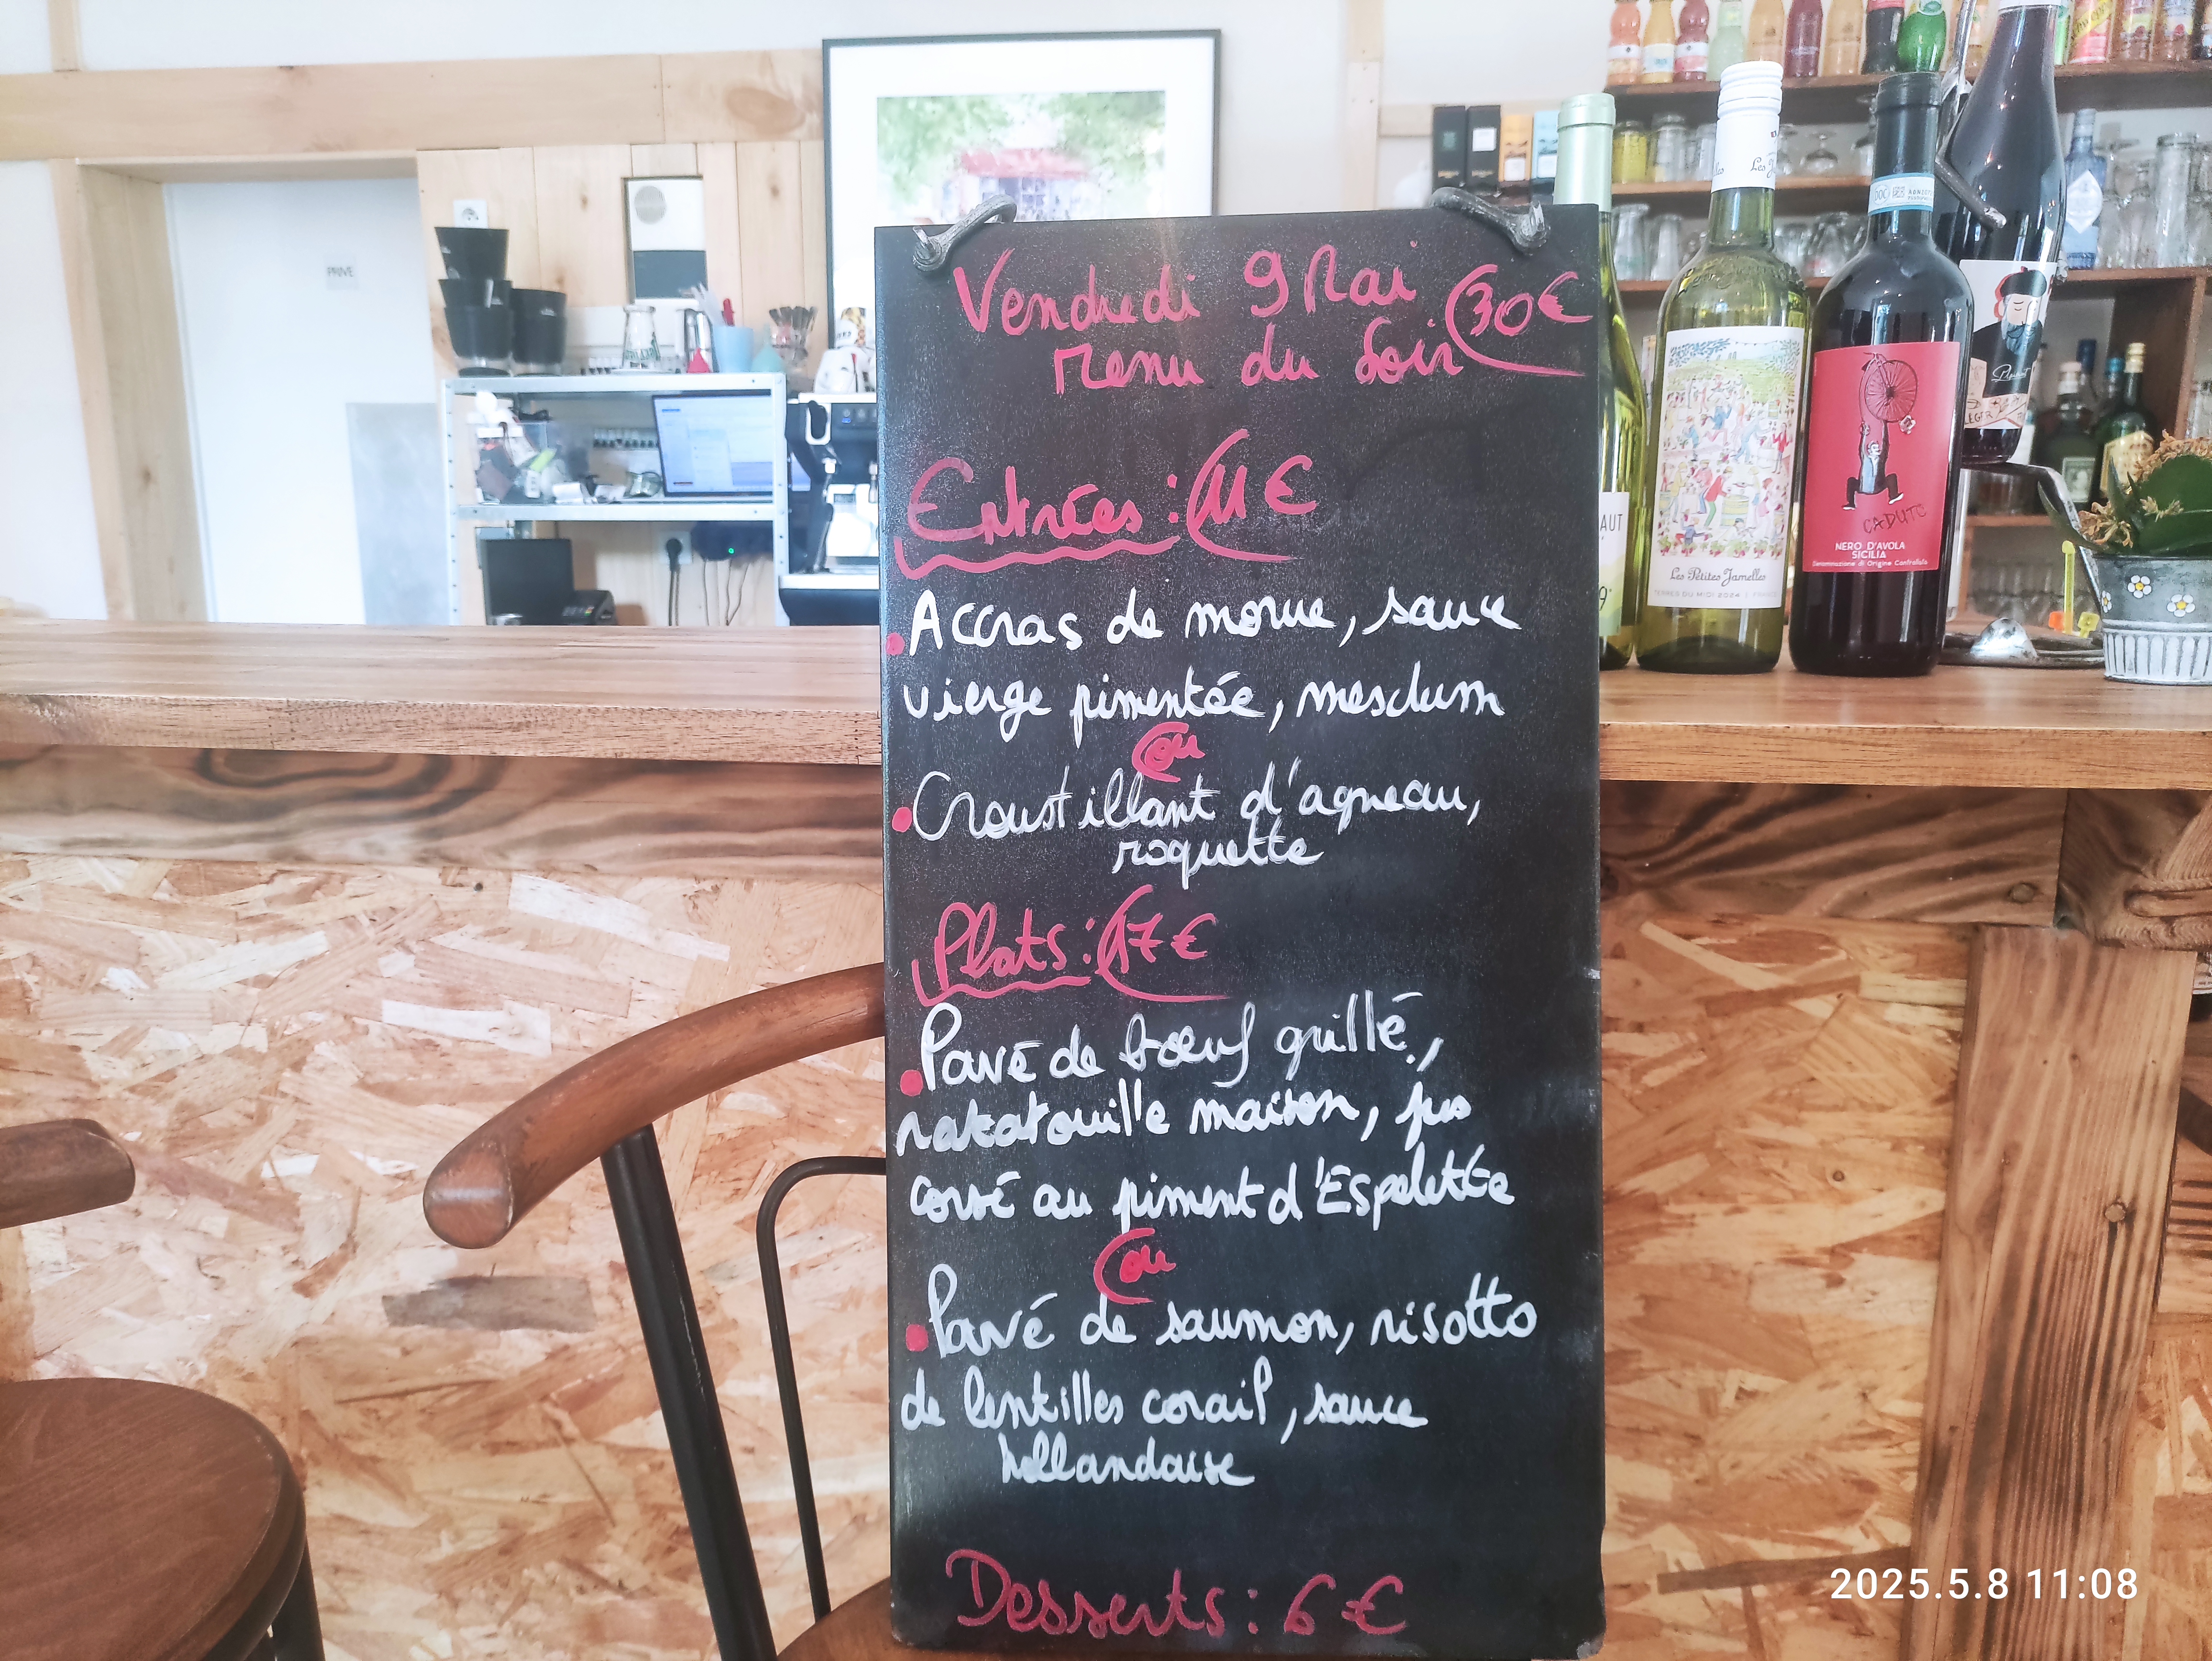 PRIVE
Vendredi 9 Mai
30€
Menu du soir
Entrées : 11€
Accras de morue, sauce
vierge pimentée, mesclum
ou
Croustillant d'agneau,
roquette
Plats : 17€
Pavé de bœuf grillé,
ratatouille maison, jus
corsé au piment d'Espelette
ou
Pavé de saumon, risotto
de lentilles corail, sauce
hollandaise
Desserts : 6€
AUT
Les Petites Jamelles
TERRES DU MIDI 2024
CADUTO
NERO D'AVOLA
SICILIA
Denominazione di Origine Controllata
2025.5.8 11:08